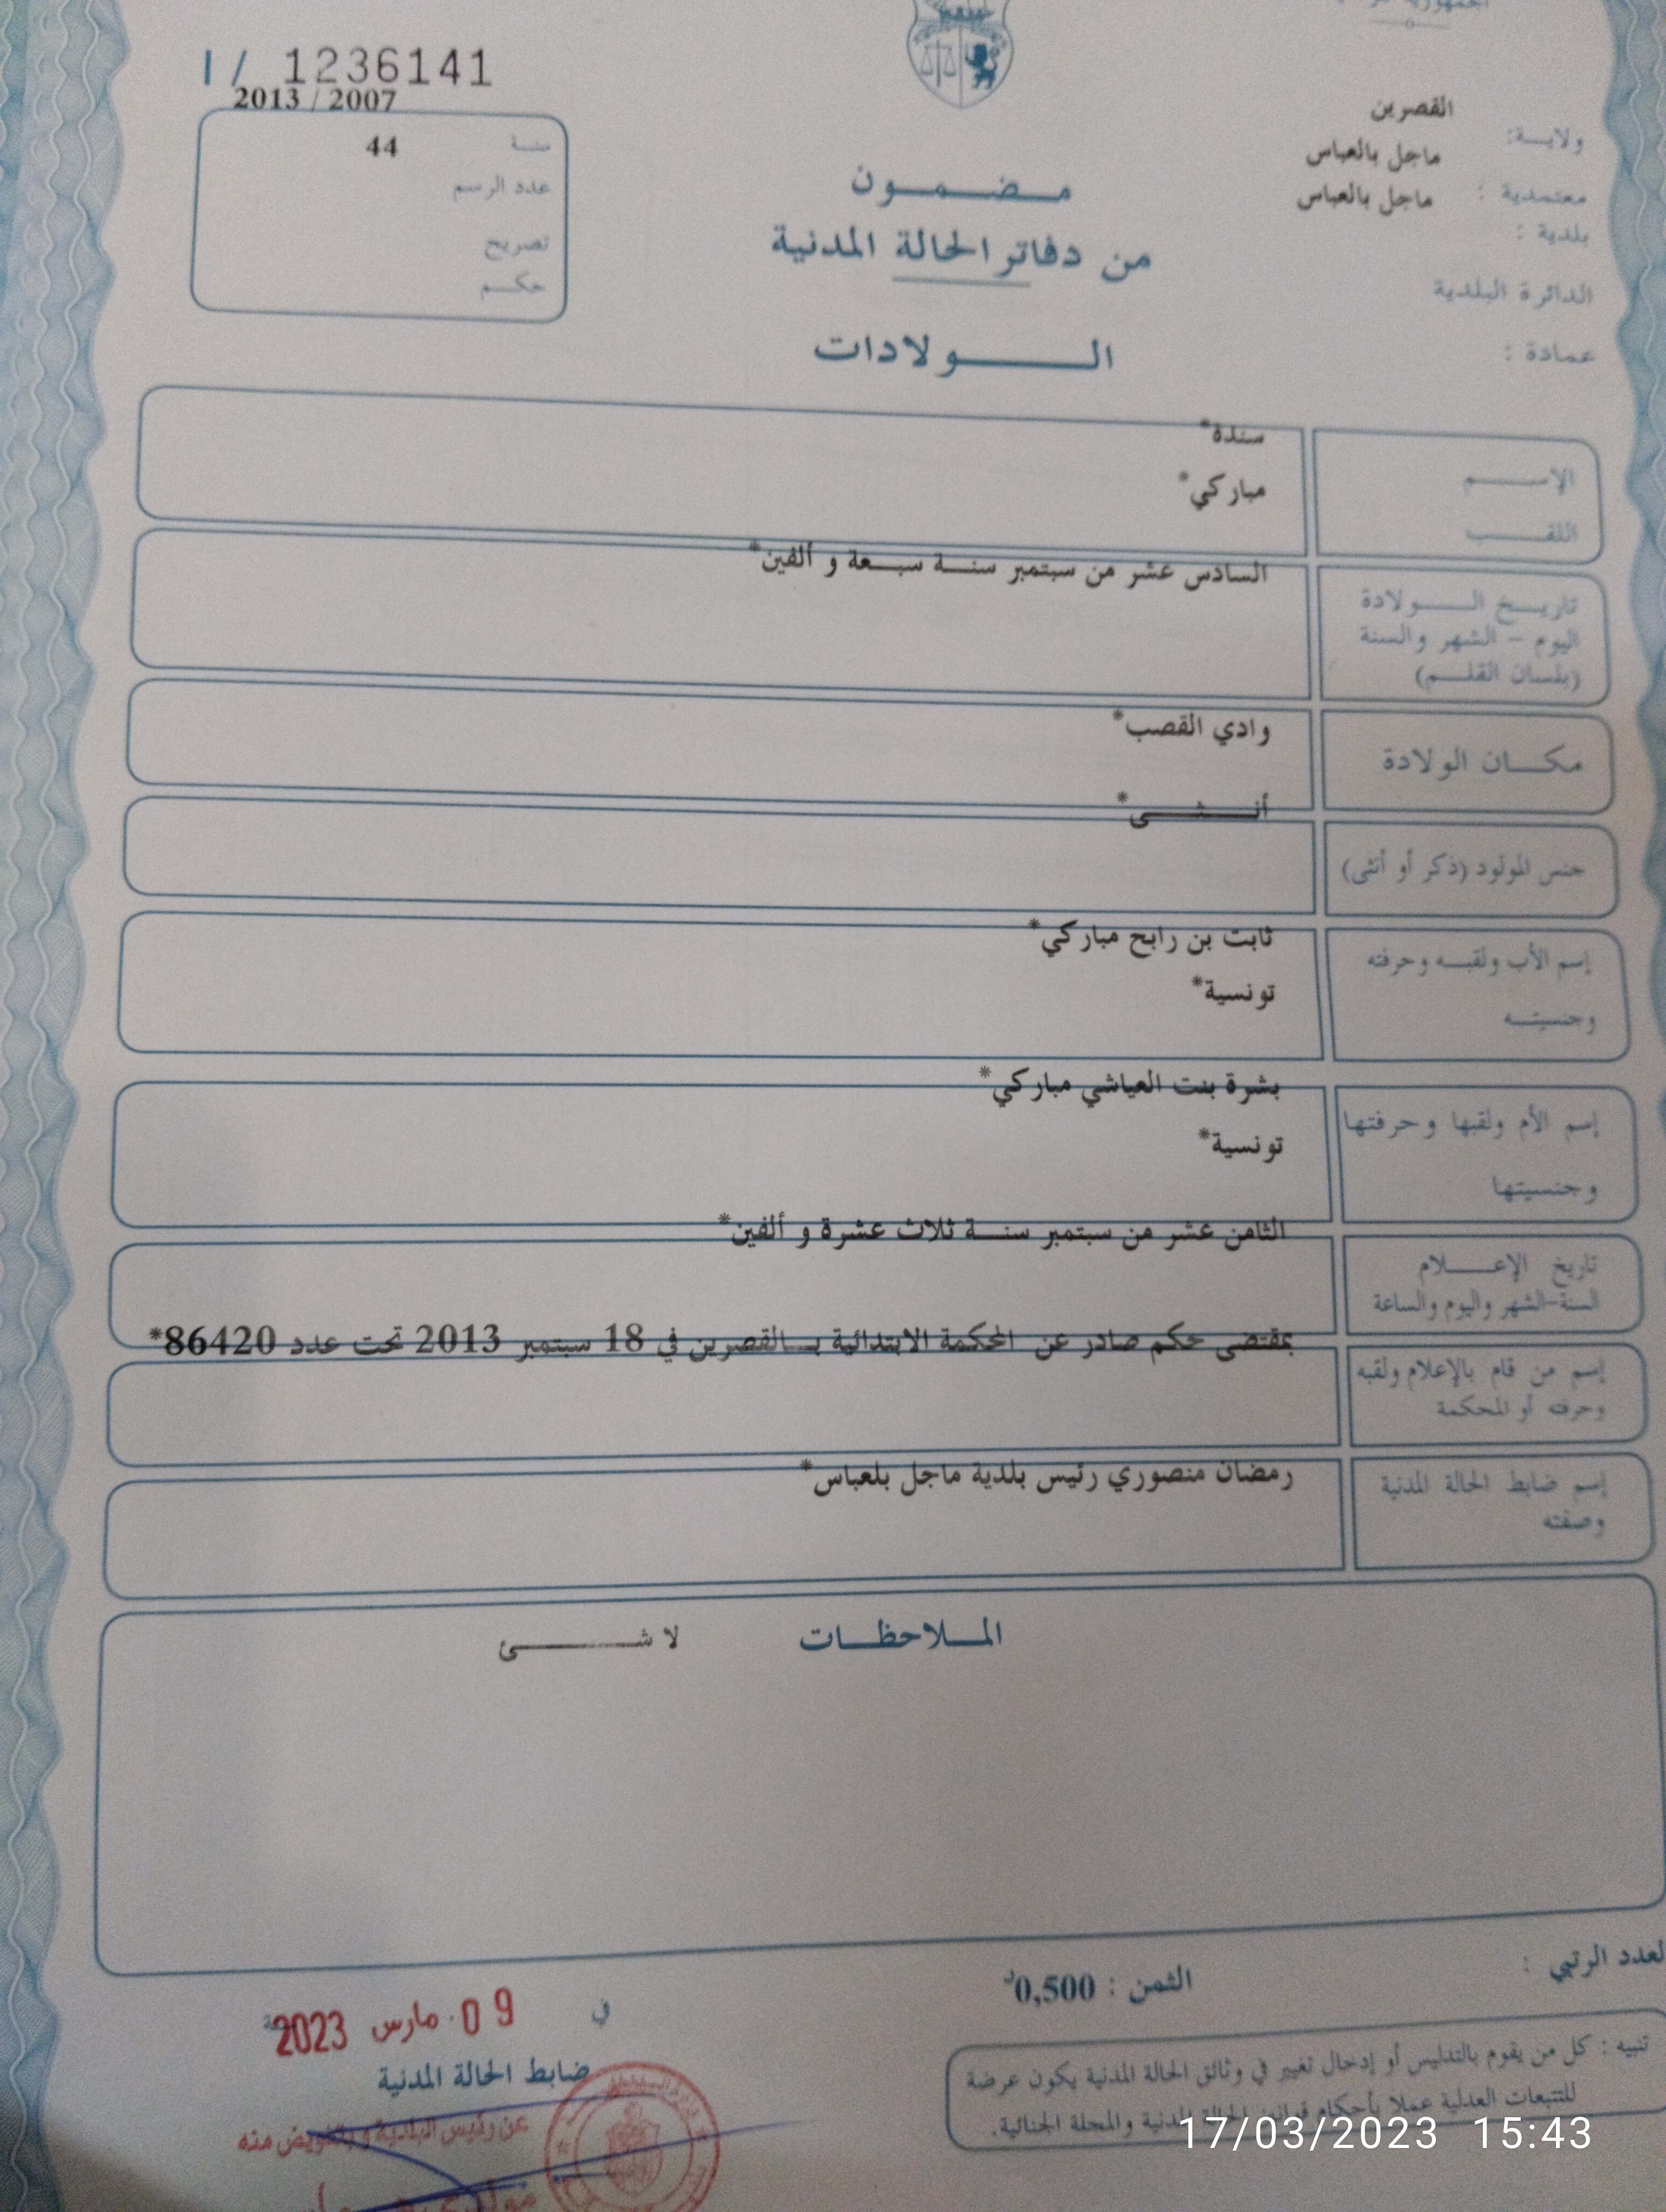 الجمهورية
I / 1236141
2013 / 2007
سنة 44
عدد الرسم
تصريح
حكم
ولاية: القصرين
معتمدية : ماجل بالعباس
بلدية : ماجل بالعباس
الدائرة البلدية
عمادة :
مضمون
من دفاتر الحالة المدنية
الولادات
الإسم
سندة*
اللقب
مباركي*
تاريخ الولادة
اليوم - الشهر والسنة
(بلسان القلم)
السادس عشر من سبتمبر سنة سبعة و ألفين*
مكان الولادة
وادي القصب*
جنس المولود (ذكر أو أنثى)
أنثى*
إسم الأب ولقبه وحرفته
وجنسيته
ثابت بن رابح مباركي*
تونسية*
إسم الأم ولقبها وحرفتها
وجنسيتها
بشرة بنت العياشي مباركي*
تونسية*
تاريخ الإعلام
السنة-الشهر واليوم والساعة
الثامن عشر من سبتمبر سنة ثلاث عشرة و ألفين*
إسم من قام بالإعلام ولقبه
وحرفته أو المحكمة
بمقتضى حكم صادر عن المحكمة الابتدائية بالقصرين في 18 سبتمبر 2013 تحت عدد 86420*
إسم ضابط الحالة المدنية
وصفته
رمضان منصوري رئيس بلدية ماجل بلعباس*
الملاحظات
لا شئ
لعدد الرتبي :
الثمن : 0,500د
في 09 مارس 2023
ضابط الحالة المدنية
عن رئيس البلدية و بتفويض منه
تنبيه : كل من يقوم بالتدليس أو إدخال تغيير في وثائق الحالة المدنية يكون عرضة
للتتبعات العدلية عملا بأحكام قوانين الحالة المدنية والمجلة الجنائية.
17/03/2023 15:43